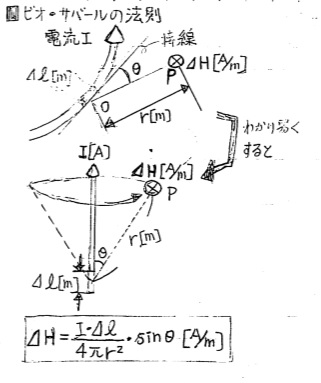 図 ビオ・サバールの法則
電流I
接線
Δl[m]
θ
ΔH[A/m]
P
O
r[m]
わかり易く
すると
I[A]
ΔH[A/m]
P
θ
r[m]
Δl[m]
ΔH = I・Δl / 4πr² ・sinθ [A/m]